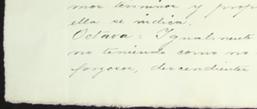 mos terminos y prop
ella se indica.
Octava: Igualmente
no teniendo como no
forzosos, descendientes